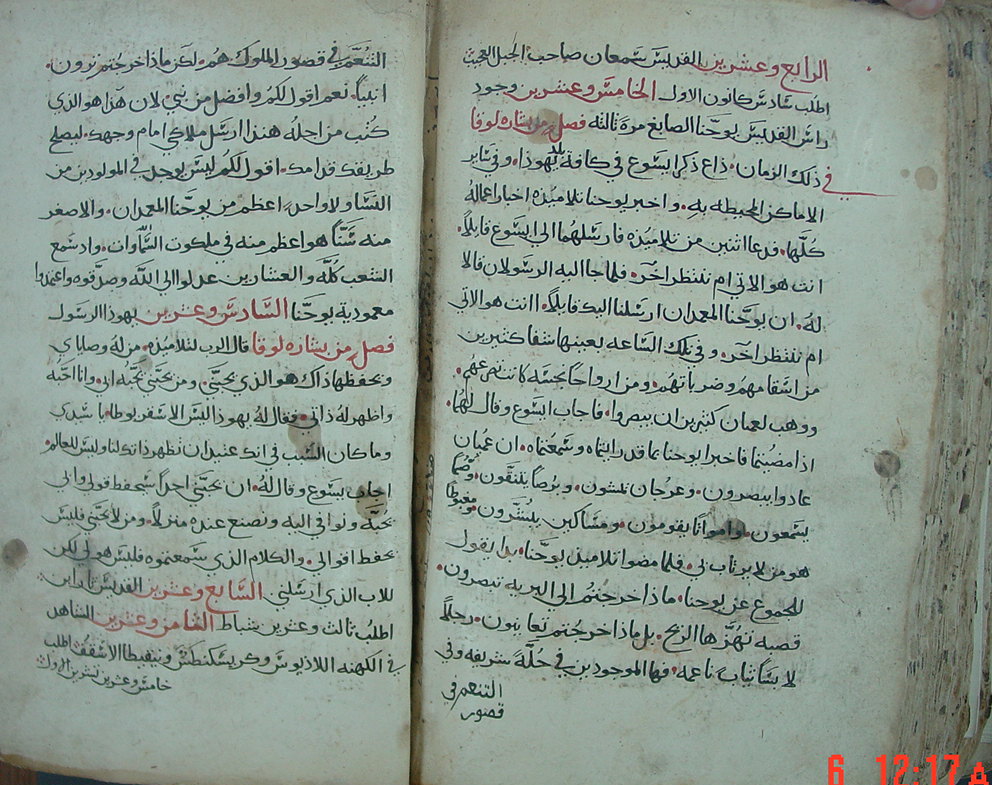 الرابع وعشرين القديس سمعان صاحب الجبل العجيب
اطلب سادس كانون الاول الخامس وعشرين وجود
راس القديس يوحنا الصابغ مرة ثالثه فصل من بشاره لوقا
في ذلك الزمان ذاع ذكر ايسوع في كافة بلد يهوذا وفي ساير
الاماكن المحيطه به واخبر يوحنا تلاميذه اخبار اعماله
كلها فدعا اثنين من تلاميذه فارسلهما الى ايسوع قايلاً
انت هو الاتي ام ننتظر اخر فلما جا اليه الرسولان قالا
له ان يوحنا المعمدان ارسلنا اليك قايلاً اانت هو الاتي
ام ننتظر اخر وفي تلك الساعه بعينها شفا كثيرين
من اسقامهم وضرباتهم ومن ارواحاً نجسه كانت تصرعهم
ووهب لعميان كثيرين ان يبصروا فاجاب ايسوع وقال لهما
اذا مضيتما فاخبرا يوحنا بما قد رايتماه وسمعتماه ان عميان
عادوا يبصرون وعرجان يمشون وبرصاً يتنقون وصماً
يسمعون وامواتاً يقومون ومساكين يبشرون مغبوطاً
هو من لا يرتاب بي فلما مضوا تلاميذ يوحنا بدا يقول
للجموع عن يوحنا ماذا خرجتم الى البريه تبصرون
قصبه تهزها الريح بل ماذا خرجتم تعاينون رجلاً
لابساً ثياب ناعمه فها الموجودين في حلةً شريفه وفي
التنعم في
قصور
التنعم في قصور الملوك هم لكن ماذا خرجتم ترون
انبياً نعم اقول لكم وافضل من نبي لان هذا هو الذي
كتب من اجله هنذا ارسل ملاكي امام وجهك ليصلح
طريقك قدامك اقول لكم ليس يوجد في المولودين من
النسا ولا واحد اعظم من يوحنا المعمدان والاصغر
منه سناً هو اعظم منه في ملكوت السماوات واذ سمع
الشعب كله والعشارين عدلوا الى الله وصدقوه واعتمدوا
معمودية يوحنا السادس وعشرين يهوذا الرسول
فصل من بشاره لوقا قال الرب لتلاميذه من له وصاياي
ويحفظها ذاك هو الذي يحبني ومن يحبني يحبه ابي وانا احبه
واظهر له ذاتي فقال له يهوذا ليس الاسخريوطا يا سيدي
وما كان السبب في انك عتيد ان تظهر ذاتك لنا وليس للعالم
اجاب يسوع وقال له ان يحبني احداً سيحفظ قولي وابي
يحبه ونوافي اليه ونصنع عنده منزلاً ومن لا يحبني فليس
يحفظ اقوالي والكلام الذي سمعتموه فليس هو لي لكن
للاب الذي ارسلني السابع وعشرين القديس
اطلب ثالث وعشرين شباط الثامن وعشرين الشاهد
في الكهنه
خامس وعشرين تشرين الاول
6 12:17 A